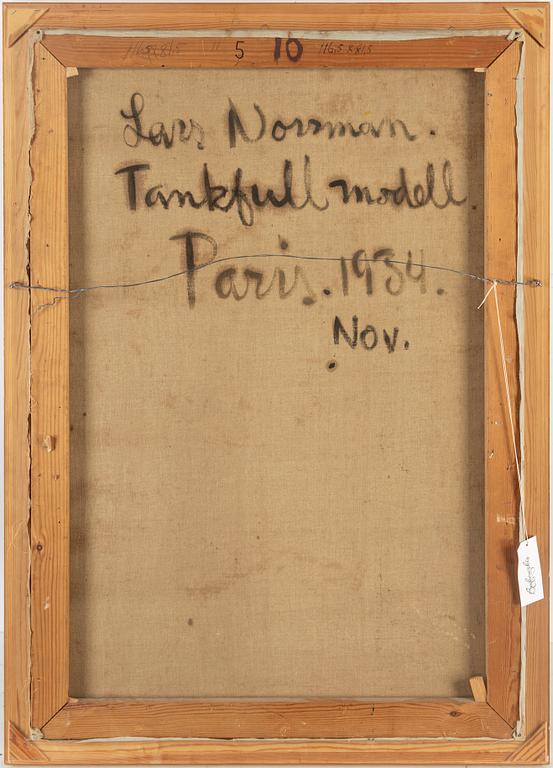 5 10 116,5 x 81,5
Lars Norrman.
Tankfull modell.
Paris. 1934.
Nov.